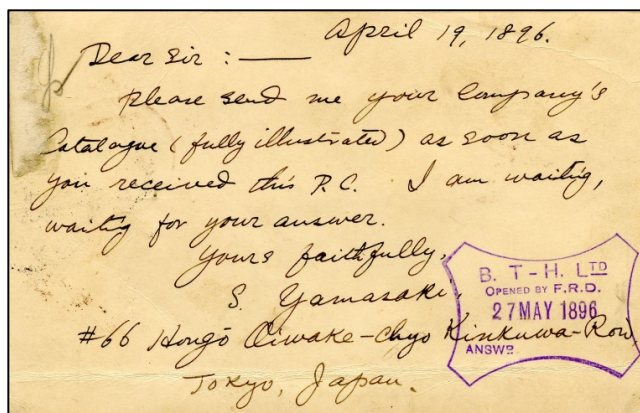 April 19, 1896.
Dear Sir : —
Please send me your Company's
Catalogue (fully illustrated) as soon as
you received this P.C. I am waiting,
waiting for your answer.
Yours faithfully,
S. Yamasaki,
#66 Hongō Oiwake-chyo Kinkuwa-Row,
Tokyo, Japan.
B. T-H. LTD
OPENED BY F.R.D.
27 MAY 1896
ANSWD